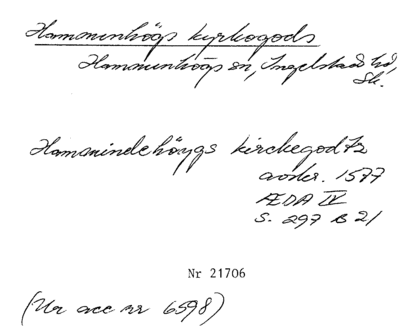 Hammenhögs kyrkogods
Hammenhögs sn, Ingelstad hd,
Sk.
Hammindehöygs kirckegodtz
avskr. 1577
ÆDA IV
S. 297 B 21
Nr 21706
(Ur acc nr 6598)